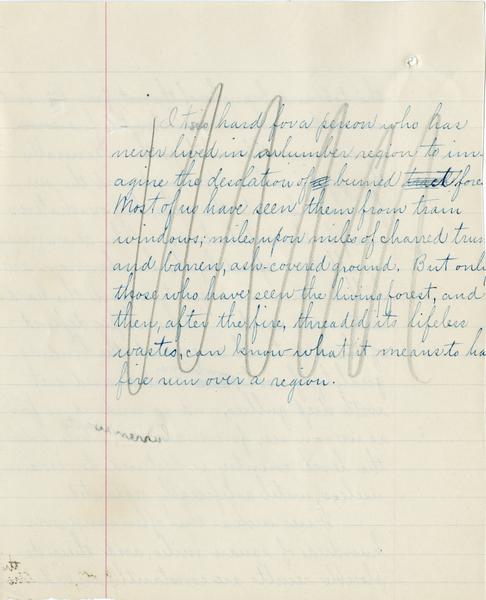 It is hard for a person who has
never lived in a lumber region to im-
agine the desolation of burned tract fore
Most of us have seen them from train
windows; miles upon miles of charred trun
and barren, ash-covered ground. But only
those who have seen the living forest, and
then, after the fire, threaded its lifeless
wastes, can know what it means to ha
fire run over a region.